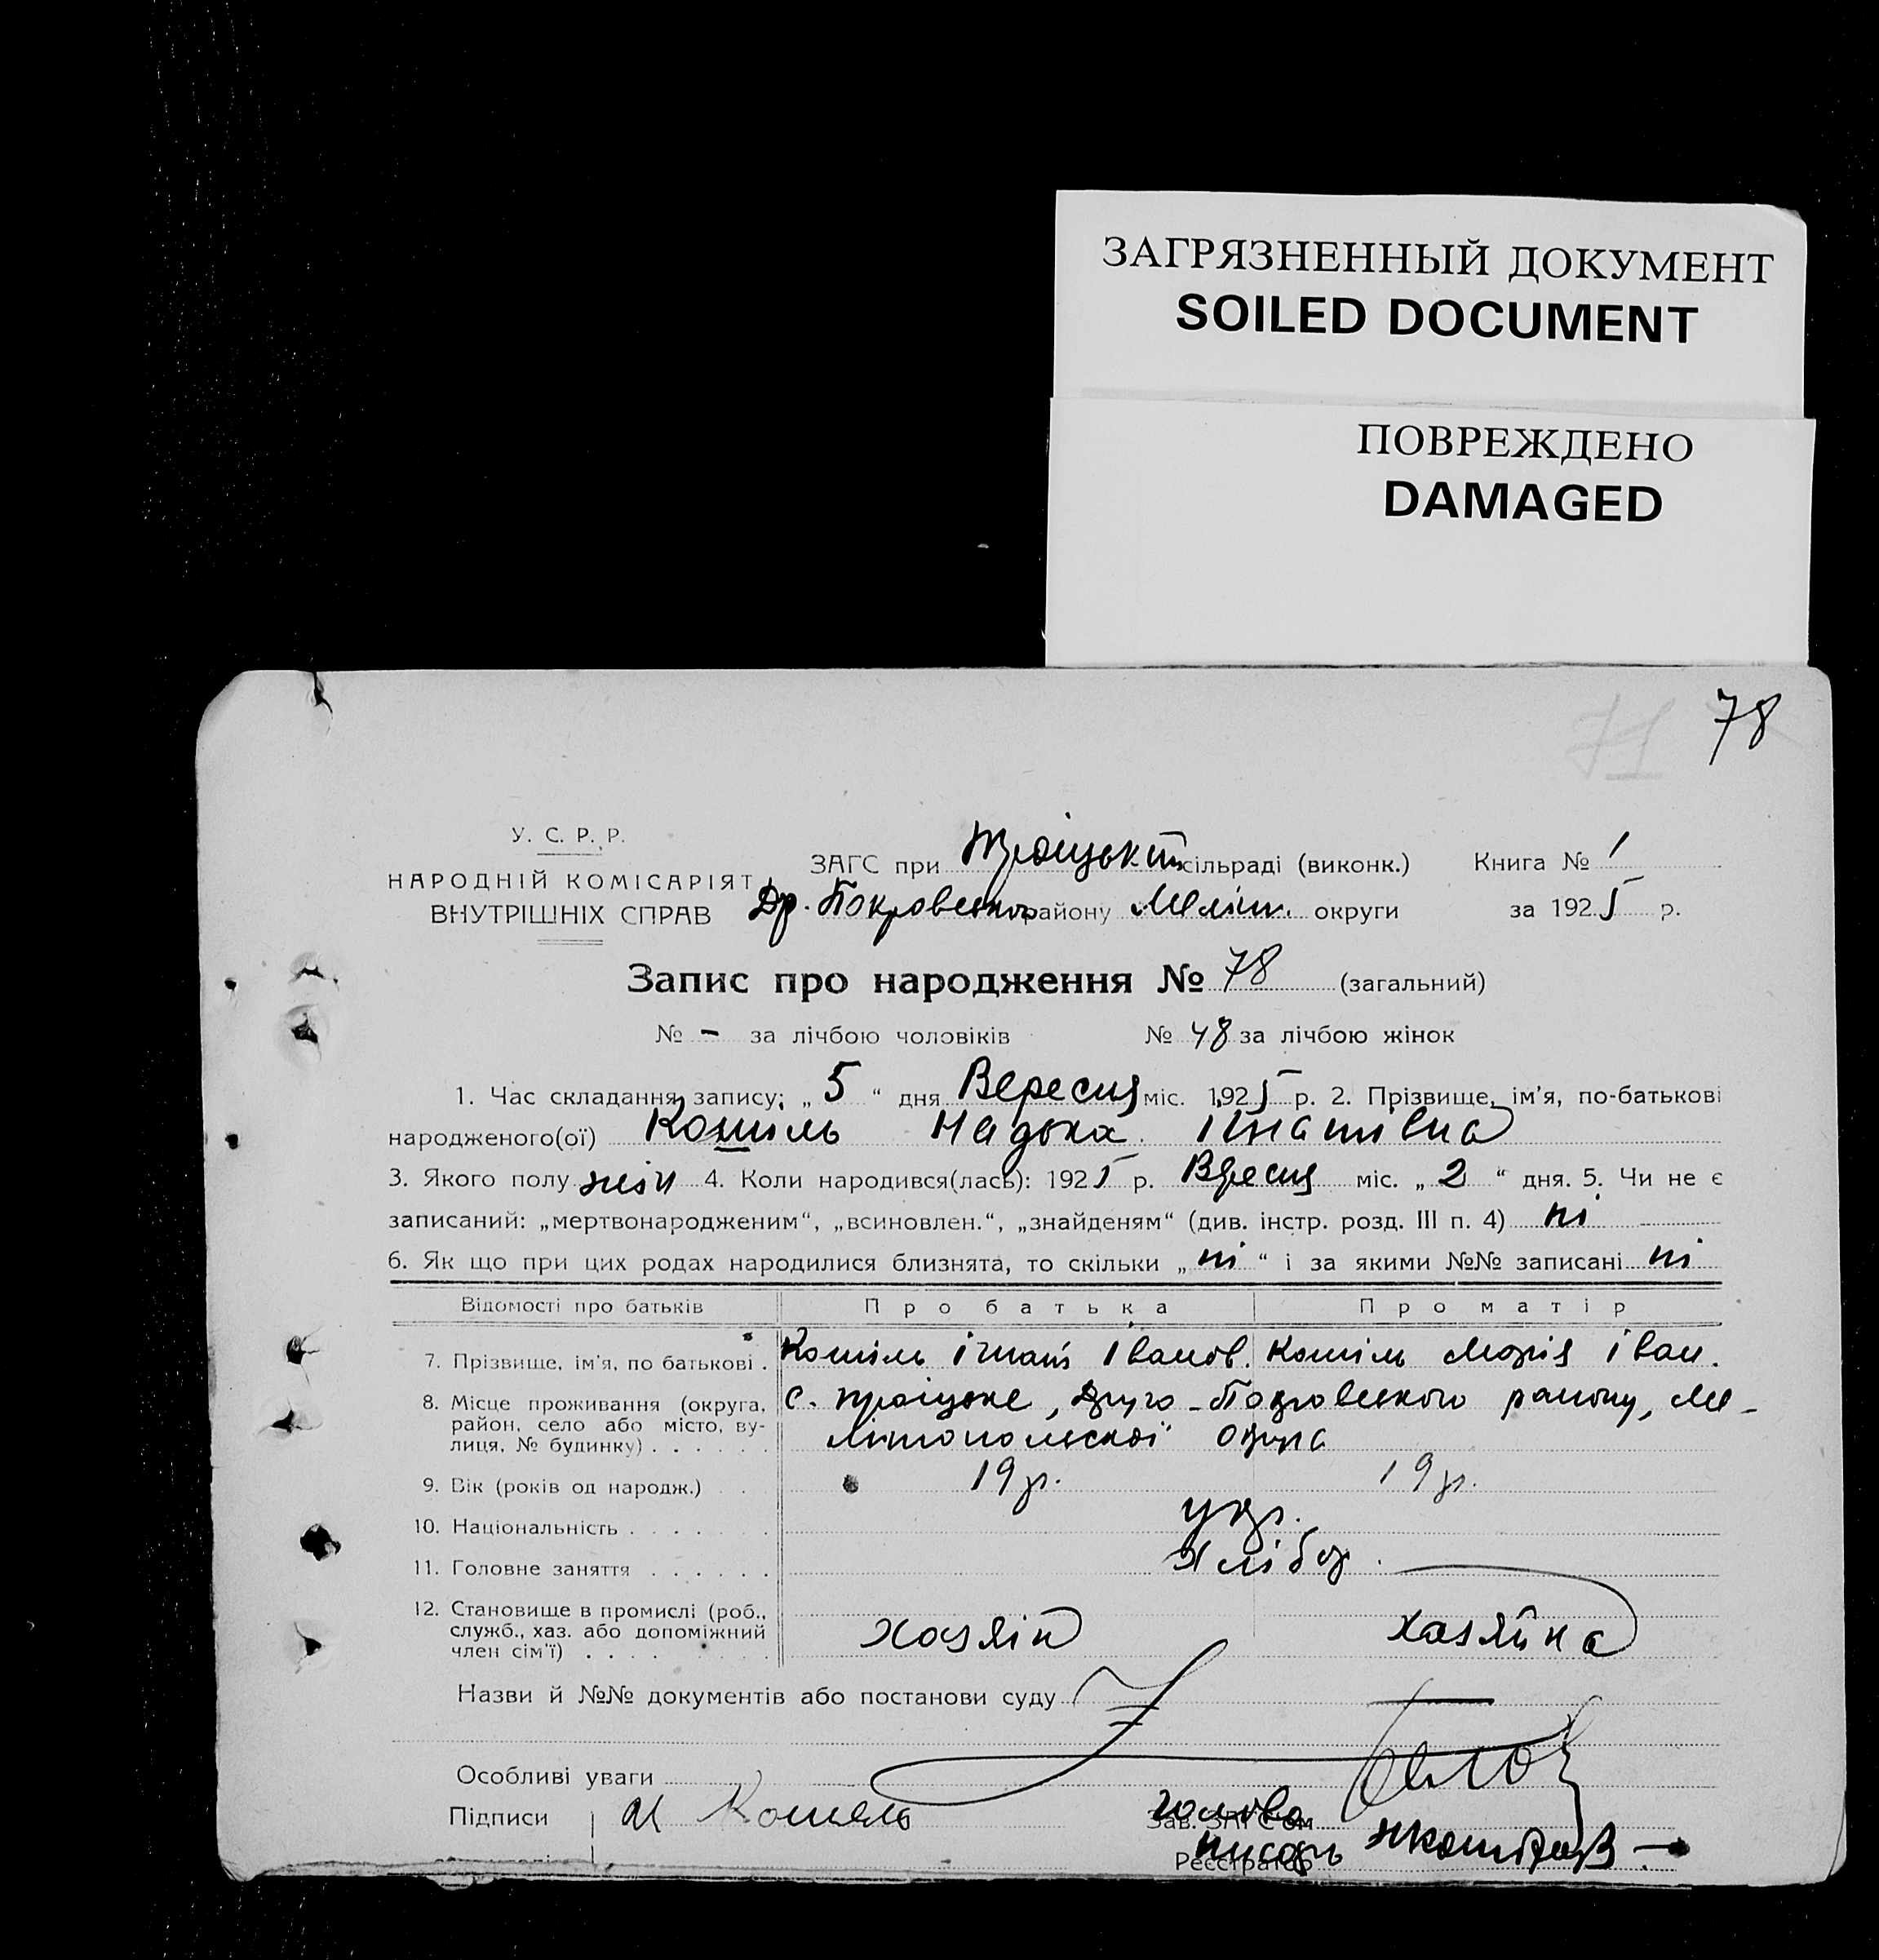 ЗАГРЯЗНЕННЫЙ ДОКУМЕНТ
SOILED DOCUMENT
ПОВРЕЖДЕНО
DAMAGED
71 78
У. С. Р. Р.
НАРОДНІЙ КОМІСАРІЯТ
ВНУТРІШНІХ СПРАВ
ЗАГС при Троіцькій сільраді (виконк.) Книга № 1
Др. Покровського району Меліт. округи за 1925 р.
Запис про народження № 78 (загальний)
№ - за лічбою чоловіків № 48 за лічбою жінок
1. Час складання запису; „ 5 “ дня Вересня міс. 1925 р. 2. Прізвище, ім'я, по-батькові
народженого(ої) Кошіль Надька Ігнатівна
3. Якого полу жін 4. Коли народився(лась): 1925 р. Вересня міс. „ 2 “ дня. 5. Чи не є
записаний: „мертвонародженим“, „всиновлен.“, „знайденям“ (див. інстр. розд. III п. 4) ні
6. Як що при цих родах народилися близнята, то скільки „ ні “ і за якими №№ записані ні
Відомості про батьків Про батька Про матір
7. Прізвище, ім'я, по батькові . Кошіль Ігнат Іванов. Кошіль Марія Іван.
8. Місце проживання (округа, с. Троіцьке, Друго-Покровського району, Ме-
район, село або місто, ву-
лиця, № будинку) . . . . . . літопольскої Округа
9. Вік (років од народж.) . . 19 р. 19 р.
10. Національність . . . . . . . укр.
11. Головне заняття . . . . . . Хлібор.
12. Становище в промислі (роб.,
служб., хаз. або допоміжний хазяін хазяйка
член сім'ї) . . . . . . . .
Назви й №№ документів або постанови суду
Особливі уваги
Підписи И Кошель голова Зав. ЗАГС'ом
писарь Реєстратор